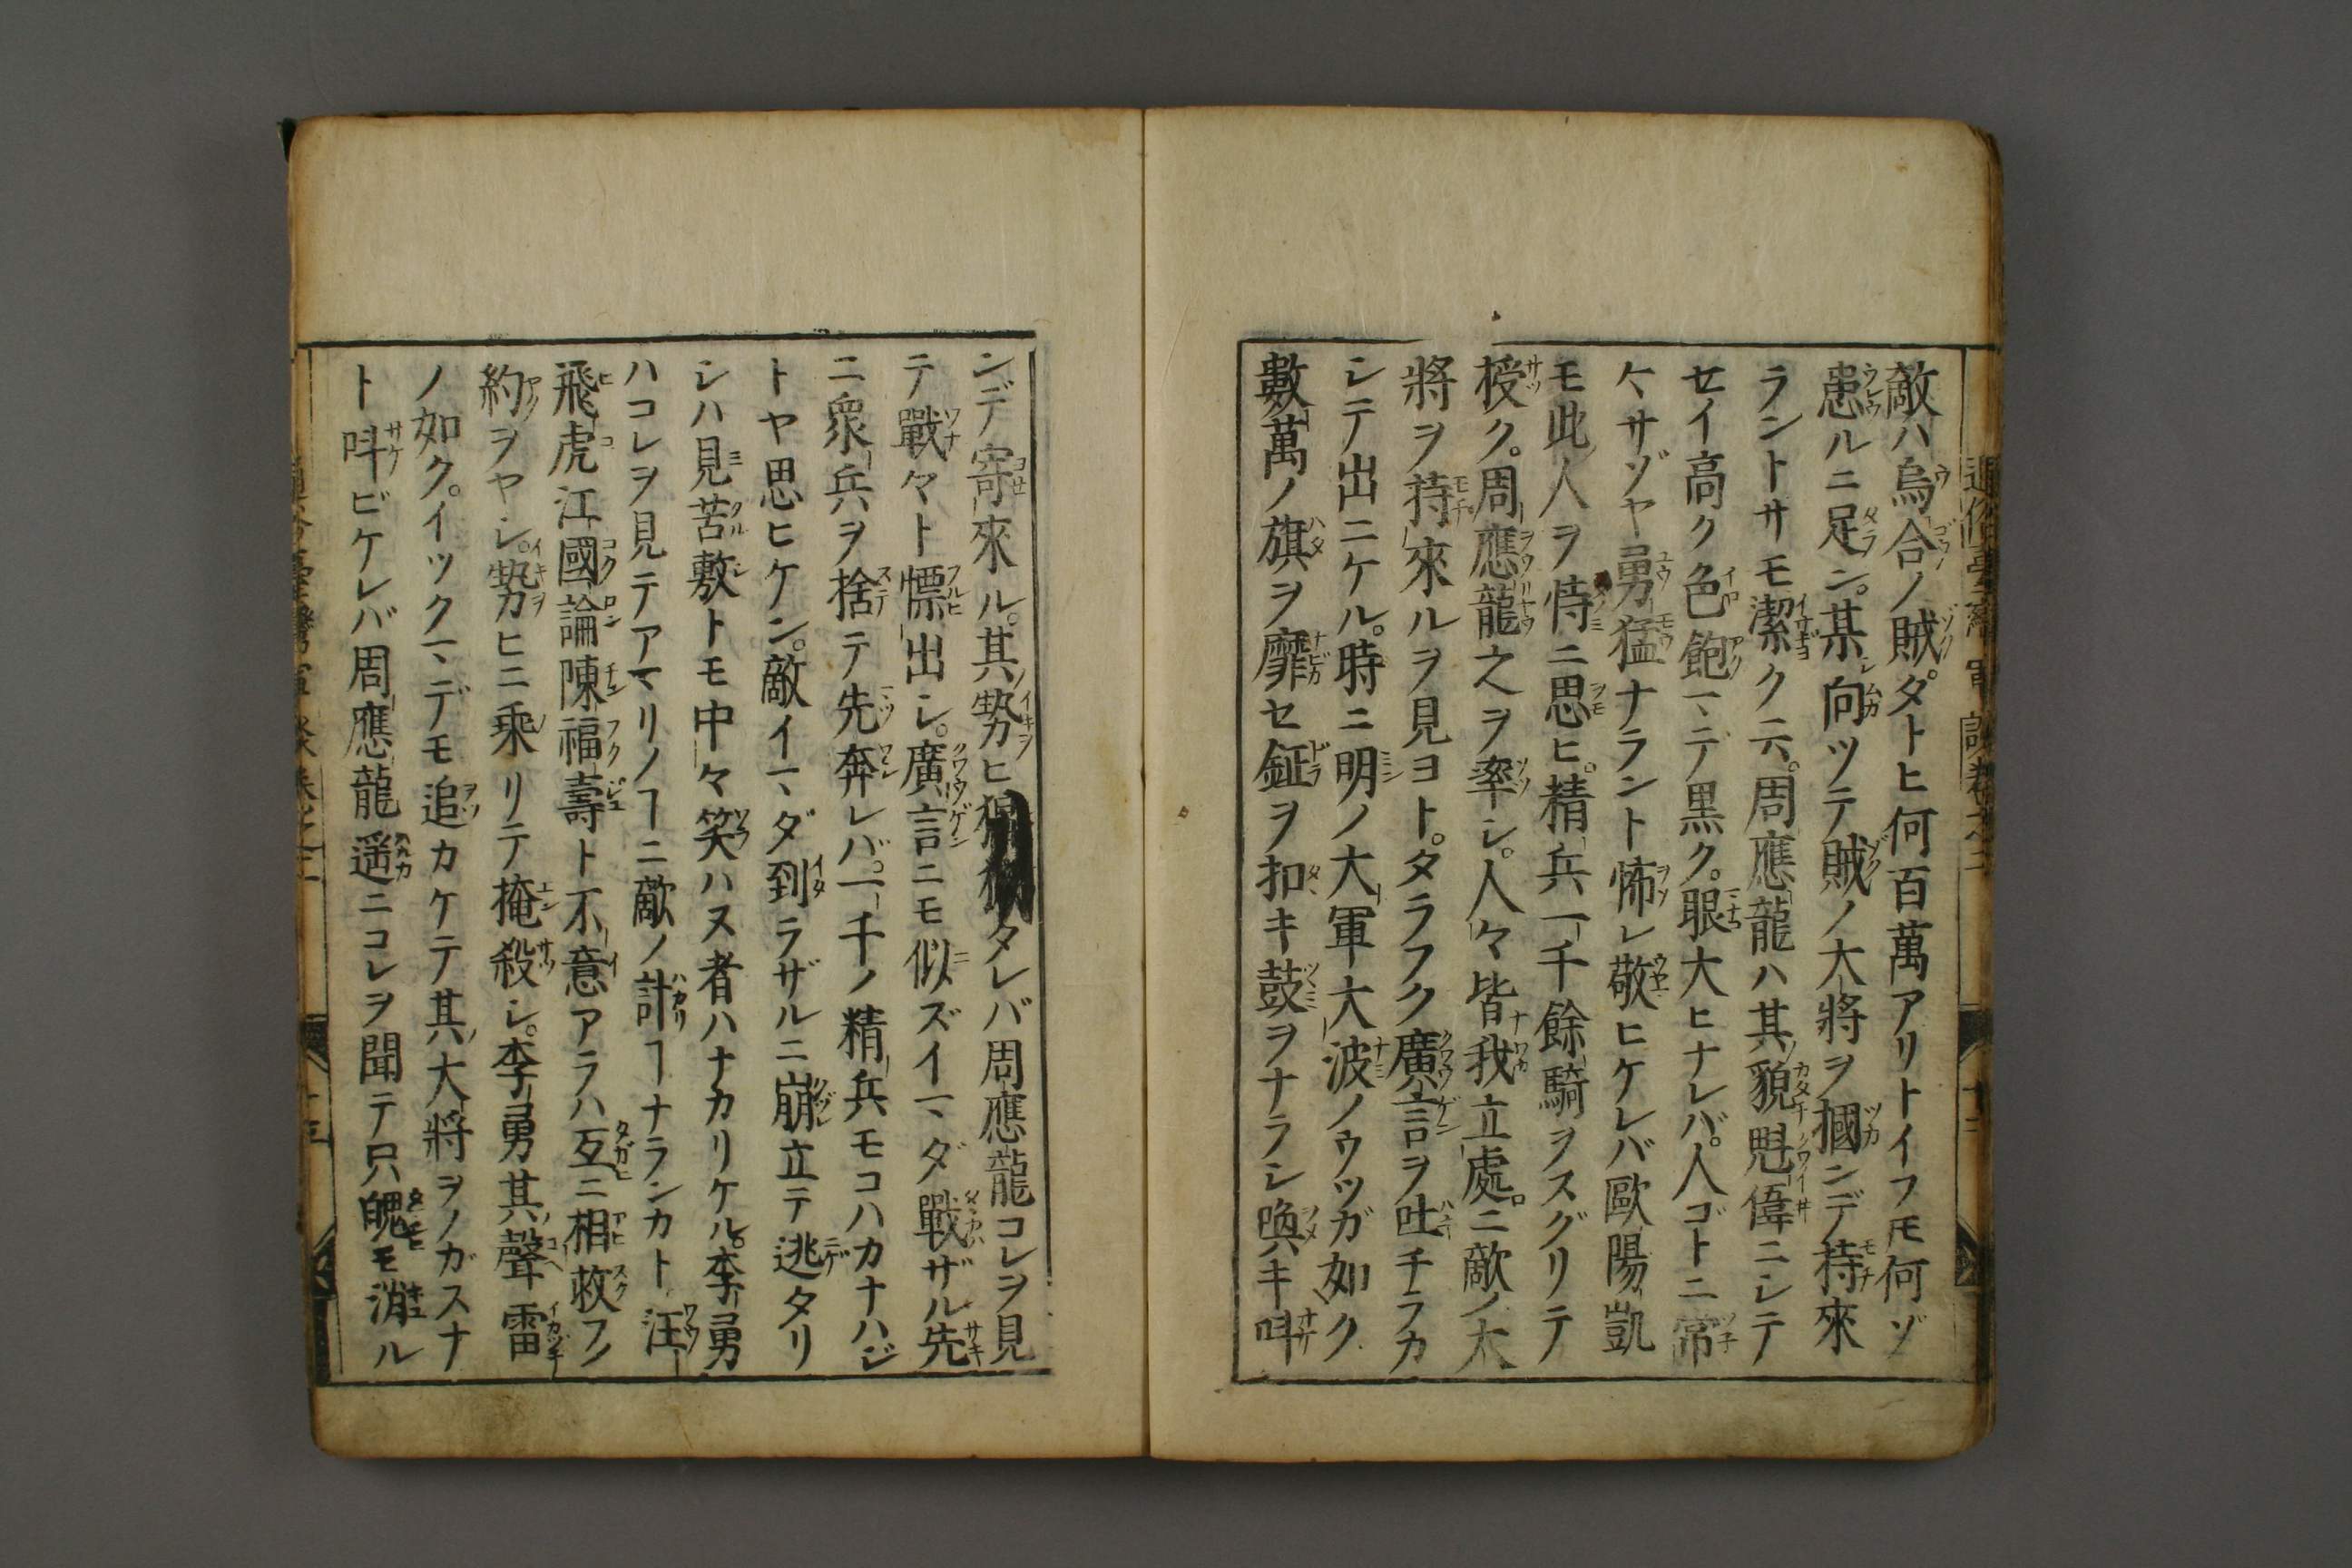 敵ハ烏合ノ賊。タトヒ何百萬アリトイフ𪜈何ゾ
患ルニ足ン。某向ツテ賊ノ大將ヲ摑ンデ持來
ラントサモ潔ク云。周應龍ハ其貌魁偉ニシテ
セイ高ク色飽マデ黒ク。眼大ヒナレバ。人ゴトニ常
々サゾヤ勇猛ナラント怖レ敬ヒケレバ歐陽凱
モ此人ヲ恃ニ思ヒ。精兵一千餘騎ヲスグリテ
授ク。周應龍之ヲ率シ。人々皆我立處ニ敵ノ大
將ヲ持來ルヲ見ヨト。タラフク廣言ヲ吐チラカ
シテ出ニケル。時ニ明ノ大軍大波ノウツガ如ク
數萬ノ旗ヲ靡セ鉦ヲ扣キ鼓ヲナラシ喚キ呌
ンデ寄來ル。其勢ヒタレバ周應龍コレヲ見
テ戰々ト慓出シ。廣言ニモ似ズイマダ戰ザル先
ニ衆兵ヲ捨テ先奔レバ。一千ノ精兵モコハカナハジ
トヤ思ヒケン。敵イマダ到ラザルニ崩立テ逃タリ
シハ見苦敷トモ中々笑ハヌ者ハナカリケル。李勇
ハコレヲ見テアマリノヿニ敵ノ計ヿナランカト汪
飛虎江國論陳福壽ト不意アラハ互ニ相救フノ
約ヲヤシ。勢ヒニ乘リテ掩殺シ。李勇其聲雷
ノ如ク。イツクマデモ追カケテ其大將ヲノガスナ
ト呌ビケレバ周應龍遥ニコレヲ聞テ只魄モ消ル